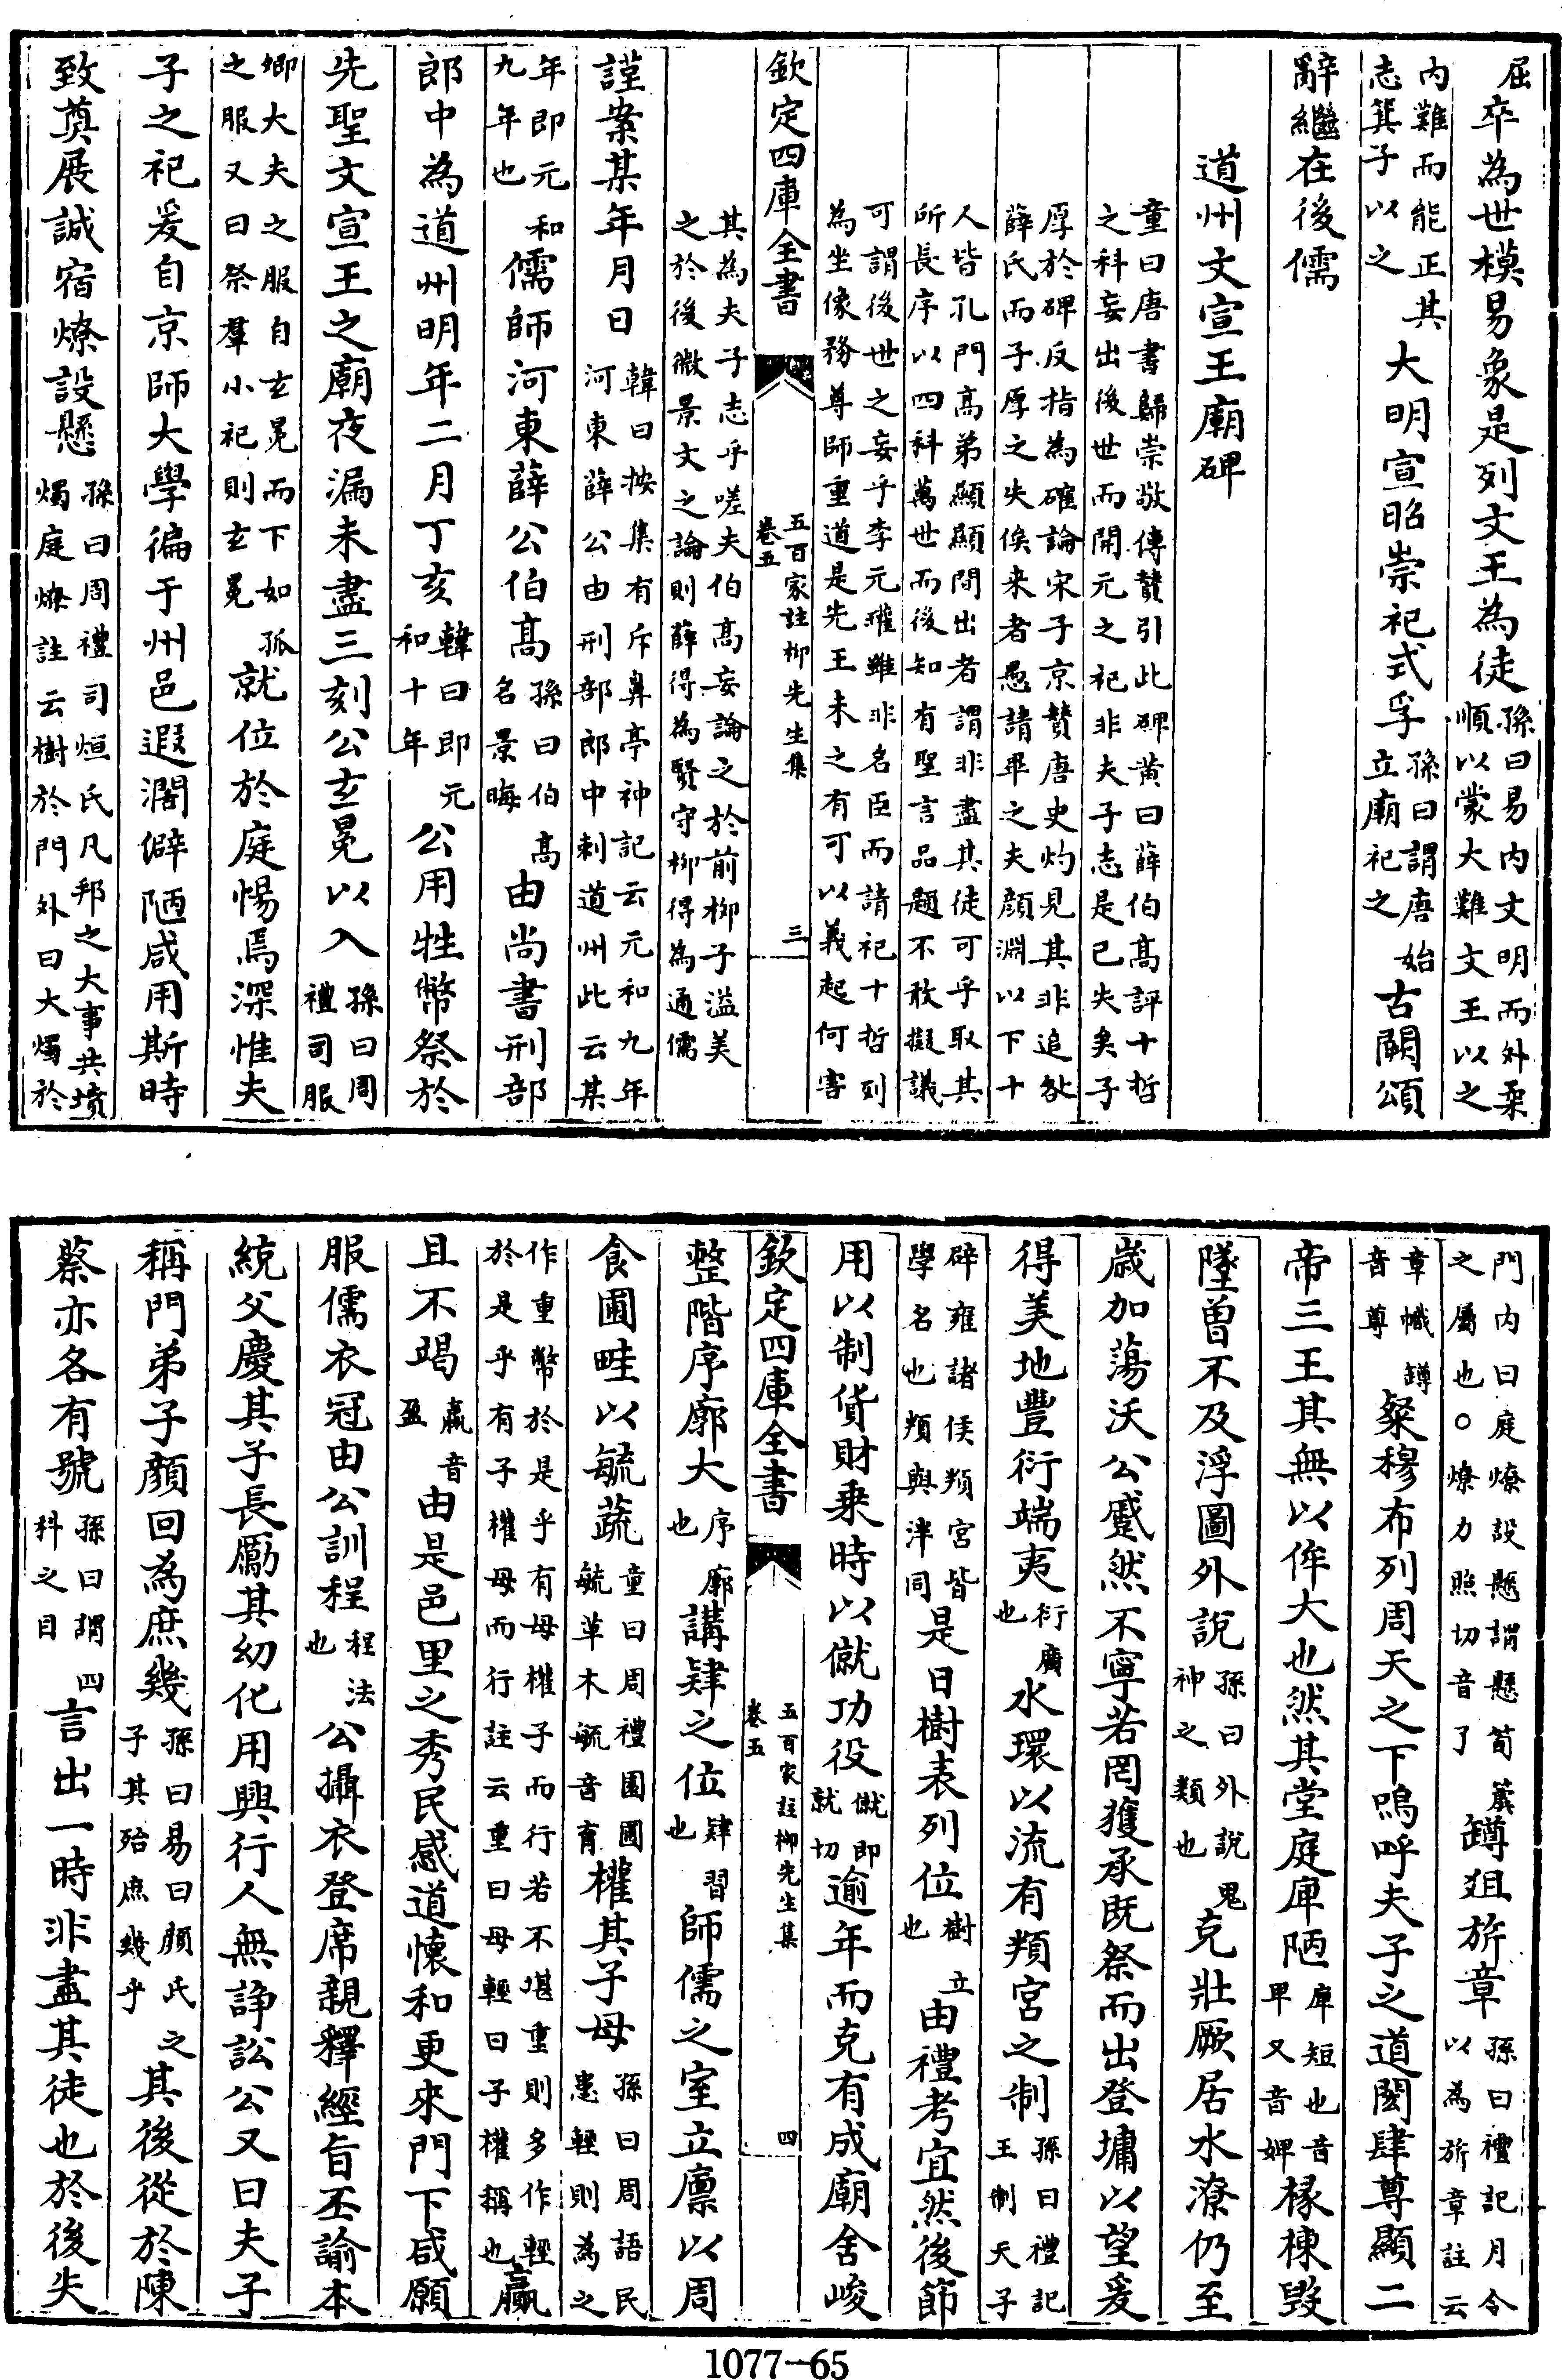 屈卒為世模易象是列文王為徒孫曰易內文明而外柔順以蒙大難文王以之
內難而能正其志箕子以之大明宣昭崇祀式孚孫曰謂唐始立廟祀之古闕頌
辭繼在後儒
道州文宣王廟碑
童曰唐書歸崇敬傳贊引此碑黃曰薛伯髙評十哲之科妄出後世而開元之祀非夫子志是已失矣子
厚於碑反指為確論宋子京贊唐史灼見其非追咎薛氏而子厚之失俟来者愚請畢之夫顔淵以下十
人皆孔門髙弟顯顯間出者謂非盡其徒可乎取其所長序以四科萬世而後知有聖言品題不敢擬議
可謂後世之妄乎李元瓘雖非名臣而請祀十哲列為坐像務尊師重道是先王未之有可以義起何害
欽定四庫全書 五百家註柳先生集 卷五 三
其為夫子志乎嗟夫伯髙妄論之於前柳子溢美之於後微景文之論則薛得為賢守柳得為通儒
謹案某年月日韓曰按集有斥鼻亭神記云元和九年河東薛公由刑部郎中刺道州此云某
年即元和九年也儒師河東薛公伯髙孫曰伯髙名景晦由尚書刑部
郎中為道州明年二月丁亥韓曰即元和十年公用牲幣祭於
先聖文宣王之廟夜漏未盡三刻公玄冕以入孫曰周禮司服
卿大夫之服自玄冕而下如孤之服又曰祭羣小祀則玄冕就位於庭惕焉深惟夫
子之祀爰自京師大學徧于州邑遐濶僻陋咸用斯時
致奠展誠宿燎設懸孫曰周禮司烜氏凡邦之大事共墳燭庭燎註云樹於門外曰大燭於
門內曰庭燎設懸謂懸筍簴之屬也○燎力照切音了罇俎旂章孫曰禮記月令以為旂章註云
章幟罇音尊粲穆布列周天之下嗚呼夫子之道閎肆尊顯二
帝三王其無以侔大也然其堂庭庳陋庳短也音卑又音婢椽棟毀
墜曽不及浮圖外說孫曰外說鬼神之類也克壯厥居水潦仍至
嵗加蕩沃公蹙然不寧若罔獲承既祭而出登墉以望爰
得美地豐衍端夷衍廣也水環以流有頖宮之制孫曰禮記王制天子
辟雍諸侯頖宮皆學名也頖與泮同是日樹表列位樹立也由禮考宜然後節
用以制貨財乗時以僦功役僦即就切逾年而克有成廟舍峻
欽定四庫全書 五百家註柳先生集 卷五 四
整階序廓大序廓也講肄之位肄習也師儒之室立廪以周
食圃畦以毓蔬童曰周禮園圃毓草木毓音育權其子母孫曰周語民患輕則為之
作重幣於是乎有母權子而行若不堪重則多作輕於是乎有子權母而行註云重曰母輕曰子權稱也贏
且不竭贏音盈由是邑里之秀民感道懐和更來門下咸願
服儒衣冠由公訓程程法也公攝衣登席親釋經旨丕諭本
統父慶其子長勵其幼化用興行人無諍訟公又曰夫子
稱門弟子顔回為庶幾孫曰易曰顔氏之子其殆庶幾乎其後從於陳
蔡亦各有號孫曰謂四科之目言出一時非盡其徒也於後失
1077—65